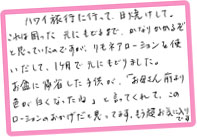 ハワイ旅行に行って、日焼けして。
これは困った 元にもどるまで、かなりかかるぞ
と思っていたのですが、リモネアローションを使
いだして、1ヶ月で元にもどりました。
お盆に帰省した子供が、「お母さん前より
色が白くなったね」と言ってくれて、この
ローションのおかげだと思ってます。もう超お気に入り
です